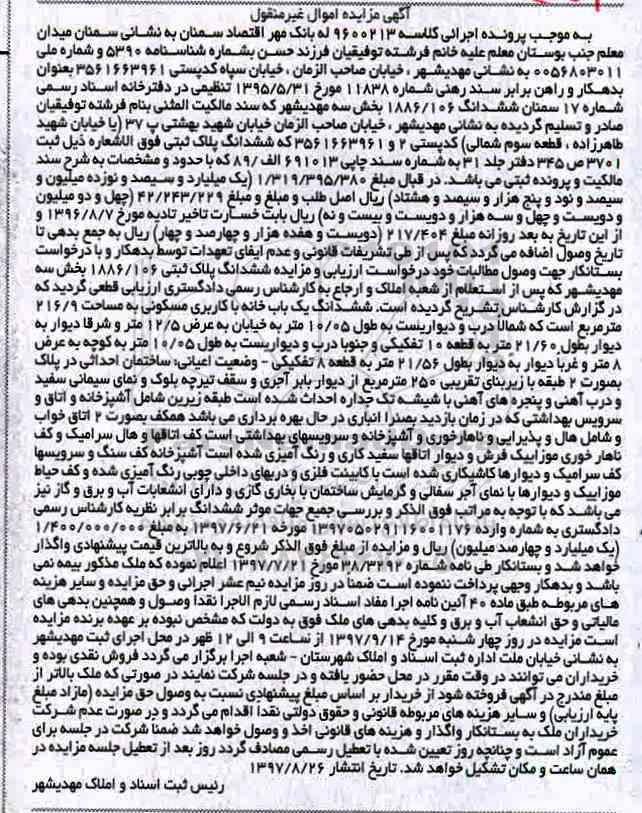 آگهی مزایده اموال غیرمنقول
به موجب پرونده اجرائی کلاسه ۹۶۰۰۲۱۳ له بانک مهر اقتصاد سمنان به نشانی سمنان میدان
معلم جنب بوستان معلم علیه خانم فرشته توفیقیان فرزند حسن بشماره شناسنامه ۵۳۹۰ و شماره ملی
۰۰۵۶۸۰۳۰۱۱ به نشانی مهدیشهر ، خیابان صاحب الزمان ، خیابان سپاه کدپستی ۳۵۶۱۶۶۳۹۶۱ بعنوان
بدهکار و راهن برابر سند رهنی شماره ۱۱۸۳۸ مورخ ۱۳۹۵/۵/۳۱ تنظیمی در دفترخانه اسناد رسمی
شماره ۱۷ سمنان ششدانگ ۱۸۸۶/۱۰۶ بخش سه مهدیشهر که سند مالکیت المثنی بنام فرشته توفیقیان
صادر و تسلیم گردیده به نشانی مهدیشهر ، خیابان صاحب الزمان خیابان شهید بهشتی پ ۳۷ (یا خیابان شهید
طاهرزاده ، قطعه سوم شمالی) کدپستی ۲ و ۳۵۶۱۶۶۳۹۶۱ که ششدانگ پلاک ثبتی فوق الاشعاره ذیل ثبت
۳۷۰۱ ص ۳۴۵ دفتر جلد ۳۱ به شماره سند چاپی ۶۹۱۰۱۳ الف /۸۹ که با حدود و مشخصات به شرح سند
مالکیت و پرونده ثبتی می باشد. در قبال مبلغ ۱/۳۱۹/۳۹۵/۳۸۰ (یک میلیارد و سیصد و نوزده میلیون و
سیصد و نود و پنج هزار و سیصد و هشتاد) ریال اصل طلب و مبلغ و مبلغ ۴۲/۲۴۳/۲۲۹ (چهل و دو میلیون
و دویست و چهل و سه هزار و دویست و بیست و نه) ریال بابت خسارت تاخیر تادیه مورخ ۱۳۹۶/۸/۷ و
از این تاریخ به بعد روزانه مبلغ ۲۱۷/۴۰۴ (دویست و هفده هزار و چهارصد و چهار) ریال به جمع بدهی تا
تاریخ وصول اضافه می گردد که پس از طی تشریفات قانونی و عدم ایفای تعهدات توسط بدهکار و با درخواست
بستانکار جهت وصول مطالبات خود درخواست ارزیابی و مزایده ششدانگ پلاک ثبتی ۱۸۸۶/۱۰۶ بخش سه
مهدیشهر که پس از استعلام از شعبه املاک و ارجاع به کارشناس رسمی دادگستری ارزیابی قطعی گردید که
در گزارش کارشناس تشریح گردیده است. ششدانگ یک باب خانه با کاربری مسکونی به مساحت ۲۱۶/۹
مترمربع است که شمالاً درب و دیواریست به طول ۱۰/۰۵ متر به خیابان به عرض ۱۲/۵ متر و شرقا دیوار به
دیوار بطول ۲۱/۶۰ متر به قطعه ۱۰ تفکیکی و جنوبا درب و دیواریست به طول ۱۰/۰۵ متر به کوچه به عرض
۸ متر و غرباً دیوار به دیوار بطول ۲۱/۵۶ متر به قطعه ۸ تفکیکی - وضعیت اعیانی: ساختمان احداثی در پلاک
بصورت ۲ طبقه با زیربنای تقریبی ۲۵۰ مترمربع از دیوار بابر آجری و سقف تیرچه بلوک و نمای سیمانی سفید
و درب آهنی و پنجره های آهنی با شیشه تک جداره احداث شده است طبقه زیرین شامل آشپزخانه و اتاق و
سرویس بهداشتی که در زمان بازدید بصنرا انباری در حال بهره برداری می باشد همکف بصورت ۲ اتاق خواب
و شامل هال و پذیرایی و ناهارخوری و آشپزخانه و سرویسهای بهداشتی است کف اتاقها و هال سرامیک و کف
ناهار خوری موزاییک فرش و دیوار اتاقها سفید کاری و رنگ آمیزی شده است آشپزخانه کف سنگ و سرویسها
کف سرامیک و دیوارها کاشیکاری شده است با کابینت فلزی و دربهای داخلی چوبی رنگ آمیزی شده و کف حیاط
موزاییک و دیوارها با نمای آجر سفالی و گرمایش ساختمان با بخاری گازی و دارای انشعابات آب و برق و گاز نیز
می باشد که با توجه به مراتب فوق الذکر و بررسی جمیع جهات موثر ششدانگ برابر نظریه کارشناس رسمی
دادگستری به شماره وارده ۱۳۹۷۰۵۰۲۹۱۱۶۰۰۱۱۷۶ مورخه ۱۳۹۷/۶/۲۱ به مبلغ ۱/۴۰۰/۰۰۰/۰۰۰
(یک میلیارد و چهارصد میلیون) ریال و مزایده از مبلغ فوق الذکر شروع و به بالاترین قیمت پیشنهادی واگذار
خواهد شد و بستانکار طی نامه شماره ۳۸/۳۲۹۲ مورخ ۱۳۹۷/۷/۲۱ اعلام نموده که ملک مذکور بیمه نمی
باشد و بدهکار وجهی پرداخت ننموده است ضمناً در روز مزایده نیم عشر اجرائی و حق مزایده و سایر هزینه
های مربوطه طبق ماده ۴۰ آئین نامه اجرا مفاد اسناد رسمی لازم الاجرا نقدا وصول و همچنین بدهی های
مالیاتی و حق انشعاب آب و برق و کلیه بدهی های ملک فوق به دولت که مشخص نبوده بر عهده برنده مزایده
است مزایده در روز چهار شنبه مورخ ۱۳۹۷/۹/۱۴ از ساعت ۹ الی ۱۲ ظهر در محل اجرای ثبت مهدیشهر
به نشانی خیابان ملت اداره ثبت اسناد و املاک شهرستان - شعبه اجرا برگزار می گردد فروش نقدی بوده و
خریداران می توانند در وقت مقرر در محل حضور یافته و در جلسه شرکت نمایند در صورتی که ملک بالاتر از
مبلغ مندرج در آگهی فروخته شود از خریدار بر اساس مبلغ پیشنهادی نسبت به وصول حق مزایده (مازاد مبلغ
پایه ارزیابی) و سایر هزینه های مربوطه قانونی و حقوق دولتی نقداً اقدام می گردد و در صورت عدم شرکت
خریداران ملک به بستانکار واگذار و هزینه های قانونی اخذ و وصول خواهد شد ضمناً شرکت در جلسه برای
عموم آزاد است و چنانچه روز تعیین شده با تعطیل رسمی مصادف گردد روز بعد از تعطیل جلسه مزایده در
همان ساعت و مکان تشکیل خواهد شد. تاریخ انتشار ۱۳۹۷/۸/۲۶
رئیس ثبت اسناد و املاک مهدیشهر